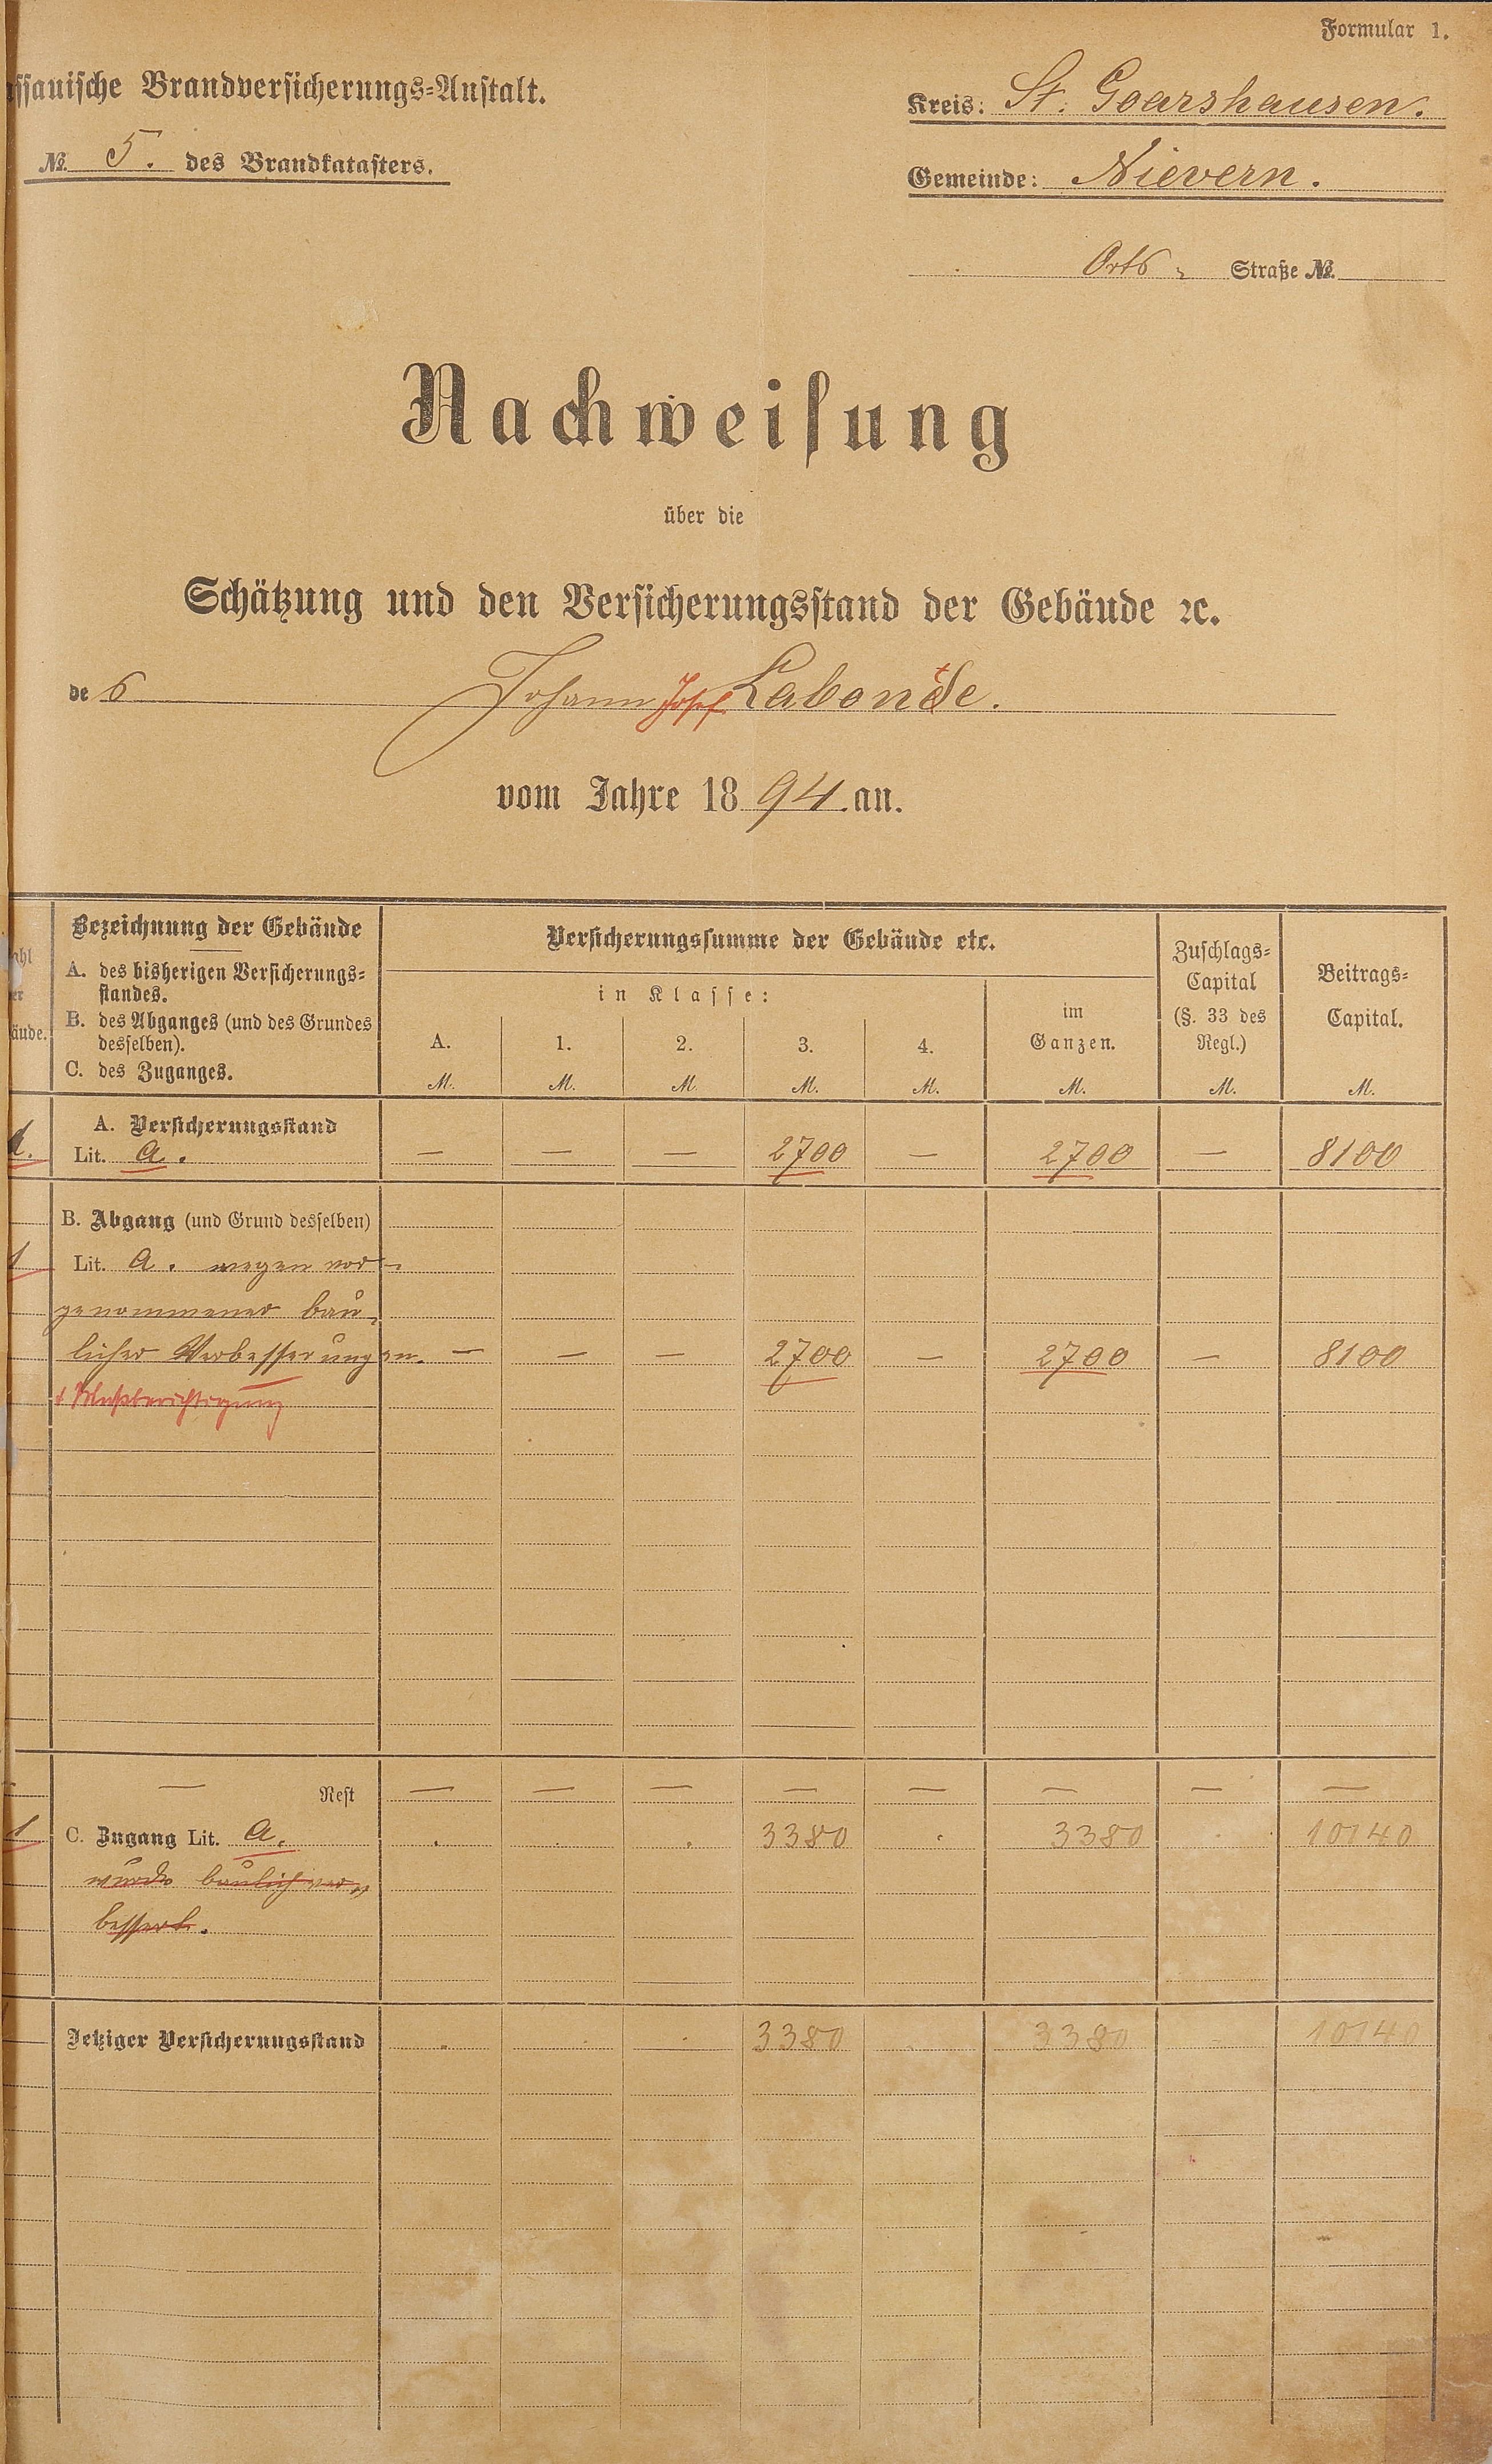 Formular 1.
ssauische Brandversicherungs-Anstalt.
Kreis: St. Goarshausen.
No. 5. des Brandkatasters.
Gemeinde: Nievern.
Orts- Straße No.
Nachweisung
über die
Schätzung und den Versicherungsstand der Gebäude ꝛc.
des Johann Josef Labonte.
vom Jahre 1894. an.
ahl
er
äude.
Bezeichnung der Gebäude
A. des bisherigen Versicherungs-
standes.
B. des Abganges (und des Grundes
desselben).
C. des Zuganges.
Versicherungssumme der Gebäude etc.
in Klasse:
A. 1. 2. 3. 4.
im
Ganzen.
Zuschlags-
Capital
(§. 33 des
Regl.)
Beitrags-
Capital.
M. M. M. M. M. M. M. M.
A. Versicherungsstand
1. Lit. a. — — — 2700 — 2700 — 8100
B. Abgang (und Grund desselben)
1 Lit. a. wegen vor-
genommener bau-
licher Verbesserungen. — — — 2700 — 2700 — 8100
+ Maßberichtigung
— Rest — — — — — — — —
1 C. Zugang Lit. a. . . . 3380 . 3380 . 10140
wurde baulich ver-
bessert.
Jetziger Versicherungsstand . . . 3380 . 3380 . 10140